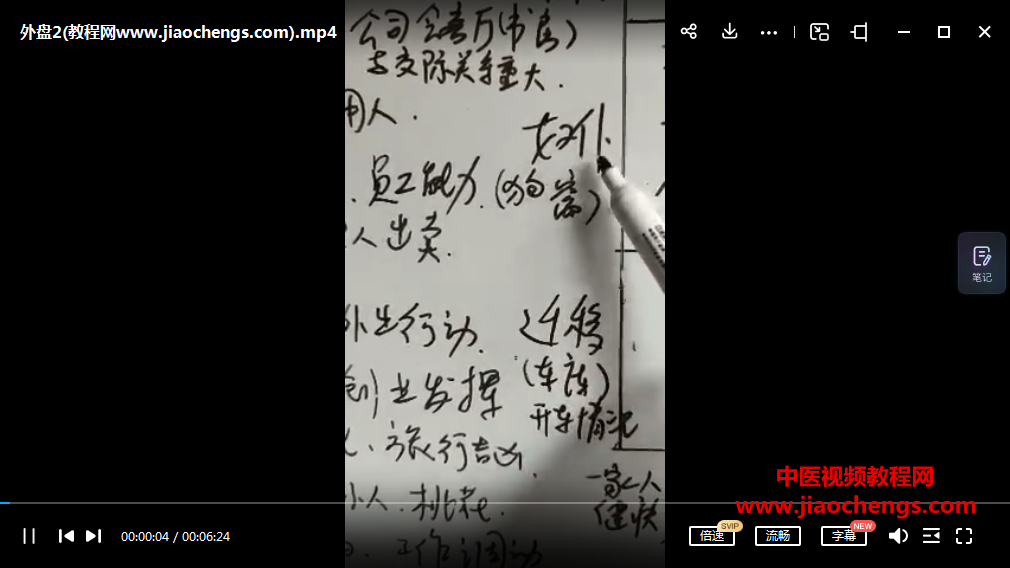 外盘2(教程网www.jiaochengs.com).mp4
公司会客厅(书房)
与交际关系重大.
用人.
奴仆
员工能力.(狗窝)
人出卖.
外出行动.
迁移
(车库)
创业发挥
开车情况
旅行吉凶.
一家人
健快
小人.桃花.
工作调动
笔记
中医视频教程网
www.jiaochengs.com
00:00:04 / 00:06:24
倍速
SVIP
流畅
字幕
NEW